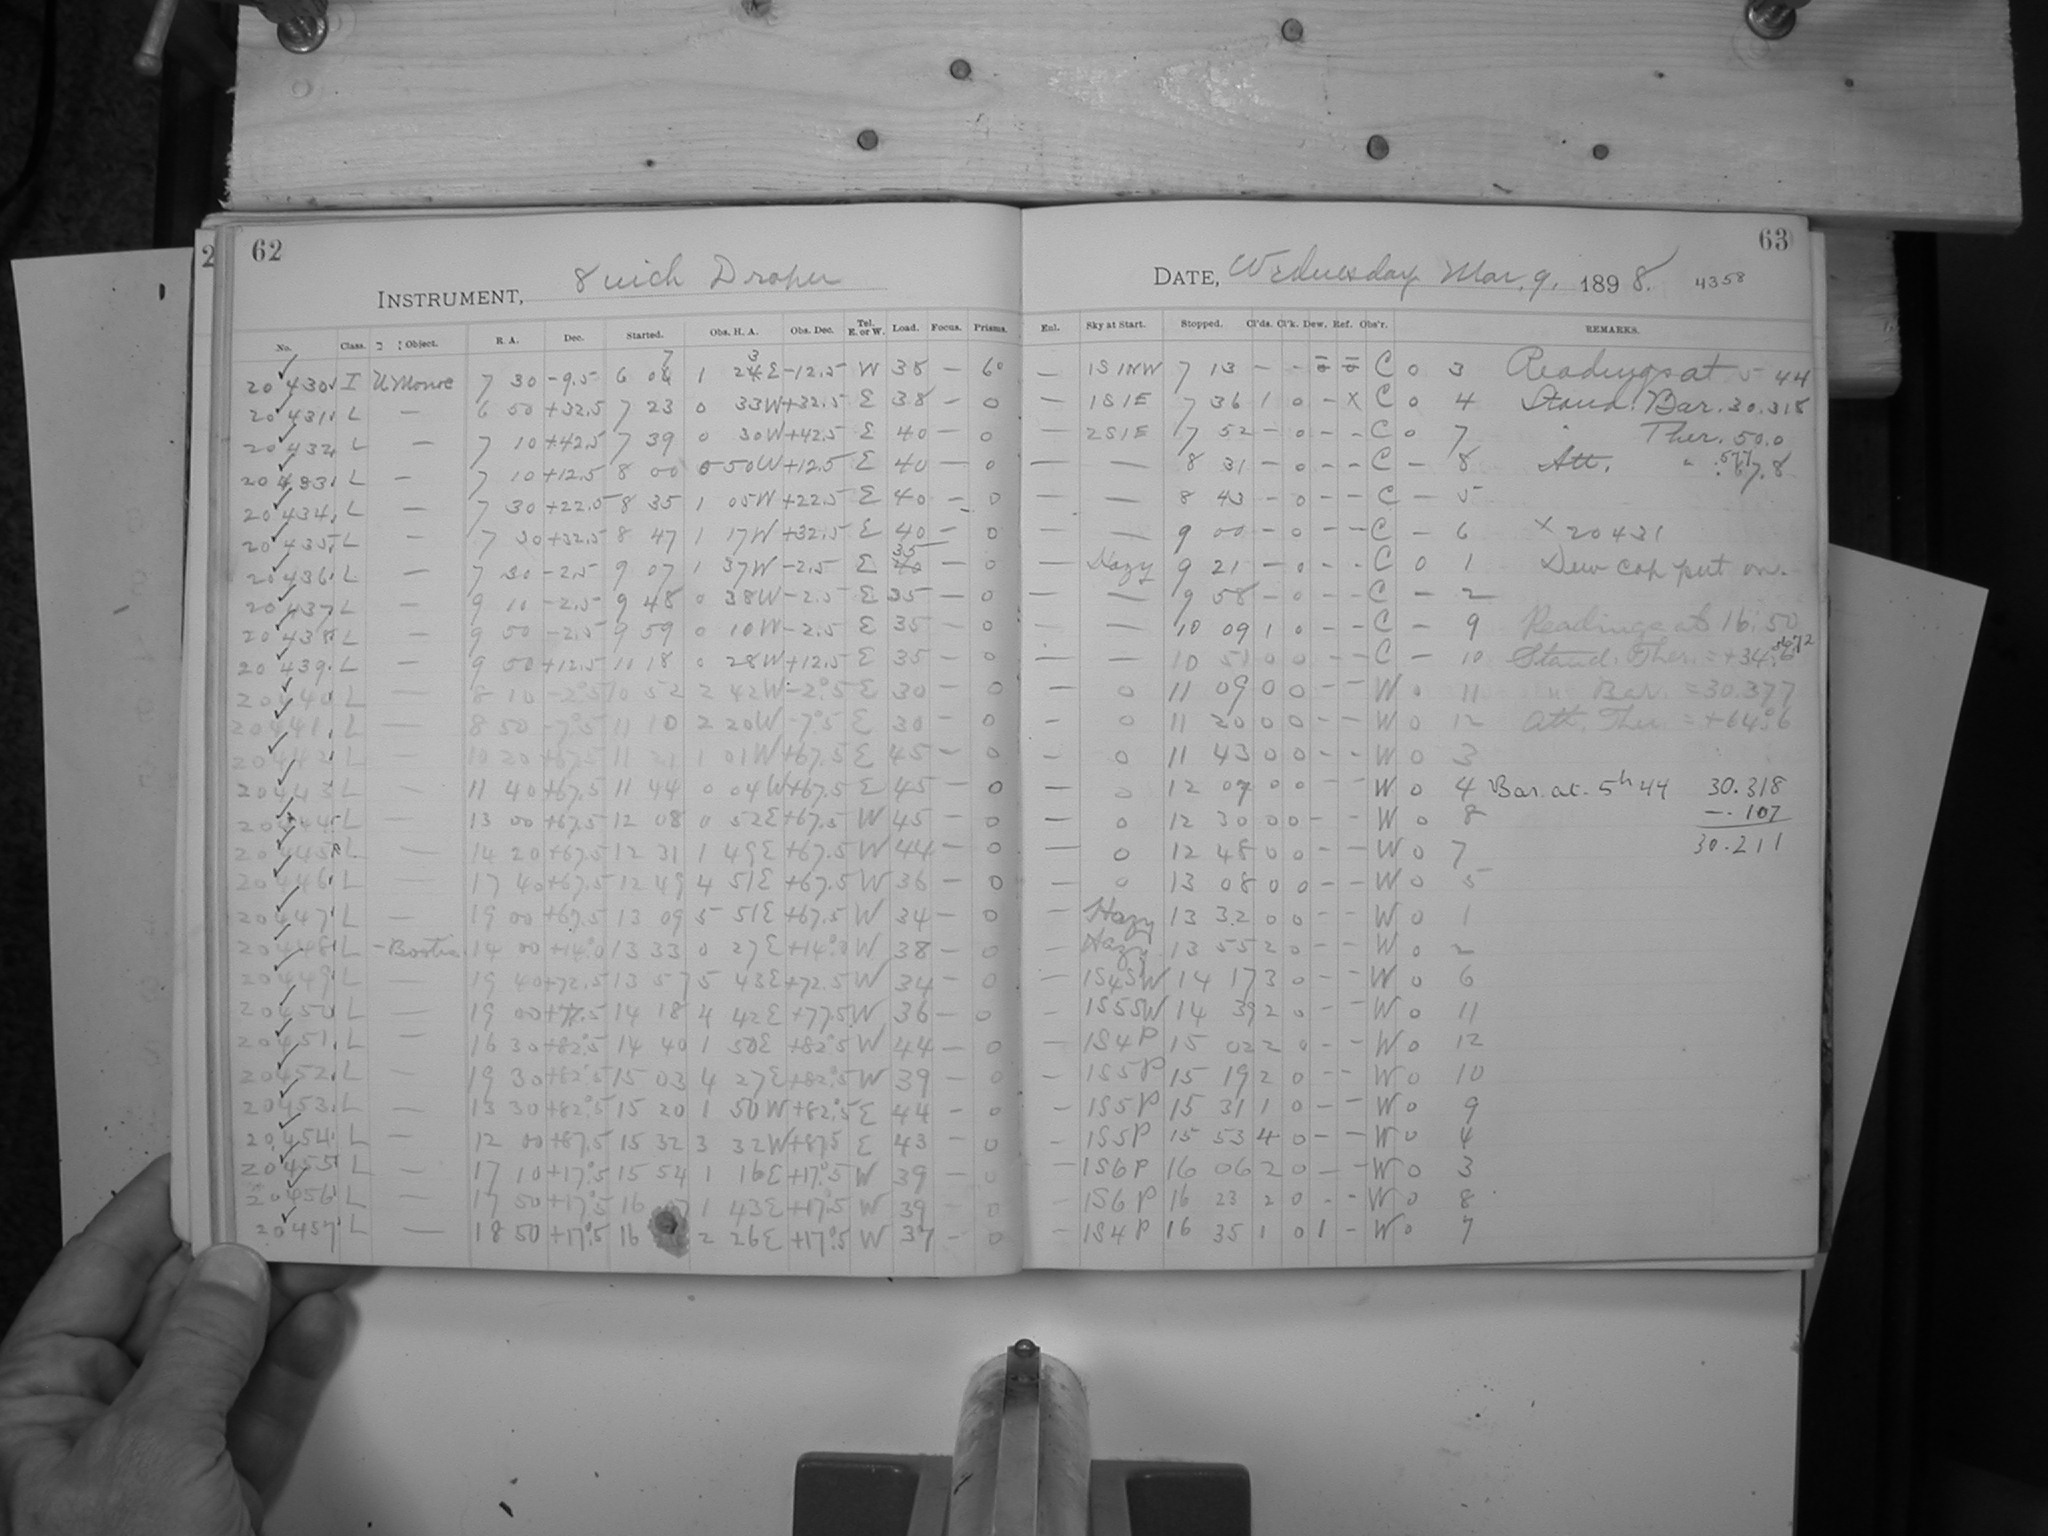 2
62
INSTRUMENT, 8 inch Draper
No. Class. Object. R. A. Dec. Started. Obs. H. A. Obs. Dec. Tel. E. or W. Load. Focus. Prisms.
20430 I U Monoc 7 30 -9.5 6 1 -12.5 W 38 — 60
20431 L — 6 50 +32.5 7 23 0 33W +32.5 E 38 — 0
20432 L — 7 10 +42.5 7 39 0 30W +42.5 E 40 — 0
20433 L — 7 10 +12.5 8 00 0 50W +12.5 E 40 — 0
20434 L — 7 30 +22.5 8 35 1 05W +22.5 E 40 — 0
20435 L — 7 30 +32.5 8 47 1 17W +32.5 E 40 — 0
20436 L — 7 30 -2.5 9 07 1 37W -2.5 E 35 — 0
20437 L — 9 10 -2.5 9 48 0 38W -2.5 E 35 — 0
20438 L — 9 50 -2.5 9 59 0 10W -2.5 E 35 — 0
20439 L — 9 50 +12.5 11 18 0 28W +12.5 E 35 — 0
20440 L — 8 10 -2°.5 10 52 2 42W -2°.5 E 30 — 0
20441 L — 8 50 -7°.5 11 10 2 20W -7°.5 E 30 — 0
20442 L — 10 20 +67.5 11 21 1 01W +67.5 E 45 — 0
20443 L — 11 40 +67.5 11 44 0 04W +67.5 E 45 — 0
20444 L — 13 00 +67.5 12 08 0 52E +67.5 W 45 — 0
20445 L — 14 20 +67.5 12 31 1 49E +67.5 W 44 — 0
20446 L — 17 40 +67.5 12 49 4 51E +67.5 W 36 — 0
20447 L — 19 00 +67.5 13 09 5 51E +67.5 W 34 — 0
20448 L — Bootis 14 00 +14°.0 13 33 0 27E +14°.0 W 38 — 0
20449 L — 19 40 +72.5 13 57 5 43E +72.5 W 34 — 0
20450 L — 19 00 +77.5 14 18 4 42E +77.5 W 36 — 0
20451 L — 16 30 +82°.5 14 40 1 50E +82°.5 W 44 — 0
20452 L — 19 30 +82°.5 15 03 4 27E +82°.5 W 39 — 0
20453 L — 13 30 +82°.5 15 20 1 50W +82°.5 E 44 — 0
20454 L — 12 00 +87.5 15 32 3 32W +87.5 E 43 — 0
20455 L — 17 10 +17°.5 15 54 1 16E +17°.5 W 39 — 0
20456 L — 17 50 +17°.5 16 07 1 43E +17°.5 W 39 — 0
20457 L — 18 50 +17°.5 16 2 26E +17°.5 W 37 — 0
63
DATE, Wednesday Mar. 9, 1898. 4358
Enl. Sky at Start. Stopped. Cl'ds. Cl'k. Dew. Ref. Obs'r. REMARKS.
— 1S1NW 7 13 — — C 0 3 Readings at 5 44
— 1S1E 7 36 1 0 — X C 0 4 Stand. Bar. 30.318
— 2S1E 7 52 — 0 — — C 0 7 " Ther. 50.0
— — 8 31 — 0 — — C — 8 Att. "
— — 8 43 — 0 — — C — 5
— — 9 00 — 0 — — C — 6 x 20431
— Hazy 9 21 — 0 — — C 0 1 Dew cap put on.
— — 9 58 — 0 — — C — 2
— — 10 09 1 0 — — C — 9 Readings at 16:50
— — 10 51 0 0 — — C — 10 Stand. Ther. = +34.6
— 0 11 09 0 0 — — W 0 11 " Bar. = 30.377
— 0 11 20 0 0 — — W 0 12 Att. Ther. = +64°.6
— 0 11 43 0 0 — — W 0 3
— 0 12 07 0 0 — — W 0 4 Bar. at 5h 44 30.318
— 0 12 30 0 0 — — W 0 8 —.107
— 0 12 48 0 0 — — W 0 7 30.211
— 0 13 08 0 0 — — W 0 5
— Hazy 13 32 0 0 — — W 0 1
— Hazy 13 55 2 0 — — W 0 2
— 1S4SW 14 17 3 0 — — W 0 6
— 1S5SW 14 39 2 0 — — W 0 11
— 1S4P 15 02 2 0 — — W 0 12
— 1S5P 15 19 2 0 — — W 0 10
— 1S5P 15 31 1 0 — — W 0 9
— 1S5P 15 53 4 0 — — W 0 4
— 1S6P 16 06 2 0 — — W 0 3
— 1S6P 16 23 2 0 — — W 0 8
— 1S4P 16 35 1 0 1 — W 0 7